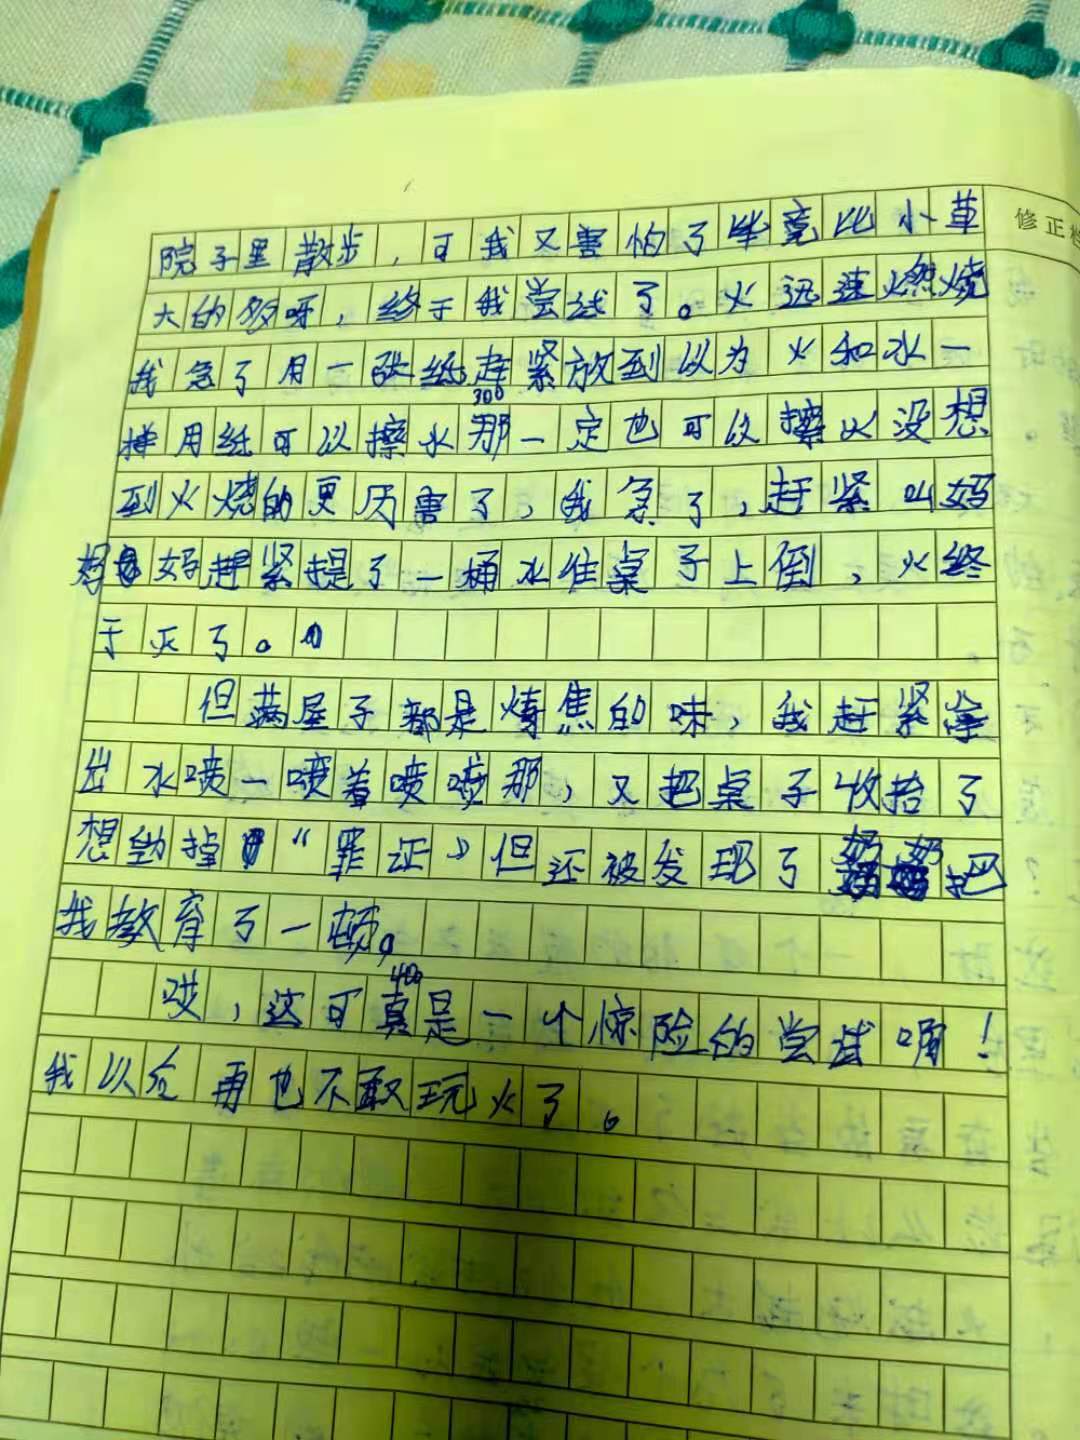 修正栏
院子里散步，可我又害怕了毕竟比小草
大的多呀，终于我尝试了。火迅速燃烧
我急了用一张纸赶紧放到以为火和水一
300
样用纸可以擦水那一定也可以擦火没想
到火烧的更历害了，我急了，赶紧叫妈
妈妈赶紧提了一桶水往桌子上倒，火终
于灭了。
但满屋子都是烤焦的味，我赶紧拿
出水喷一喷着喷喷那，又把桌子收拾了
想掉“罪证”但还被发现了奶奶把
我教育了一顿。
400
哎，这可真是一个惊险的尝试啊！
我以后再也不敢玩火了。